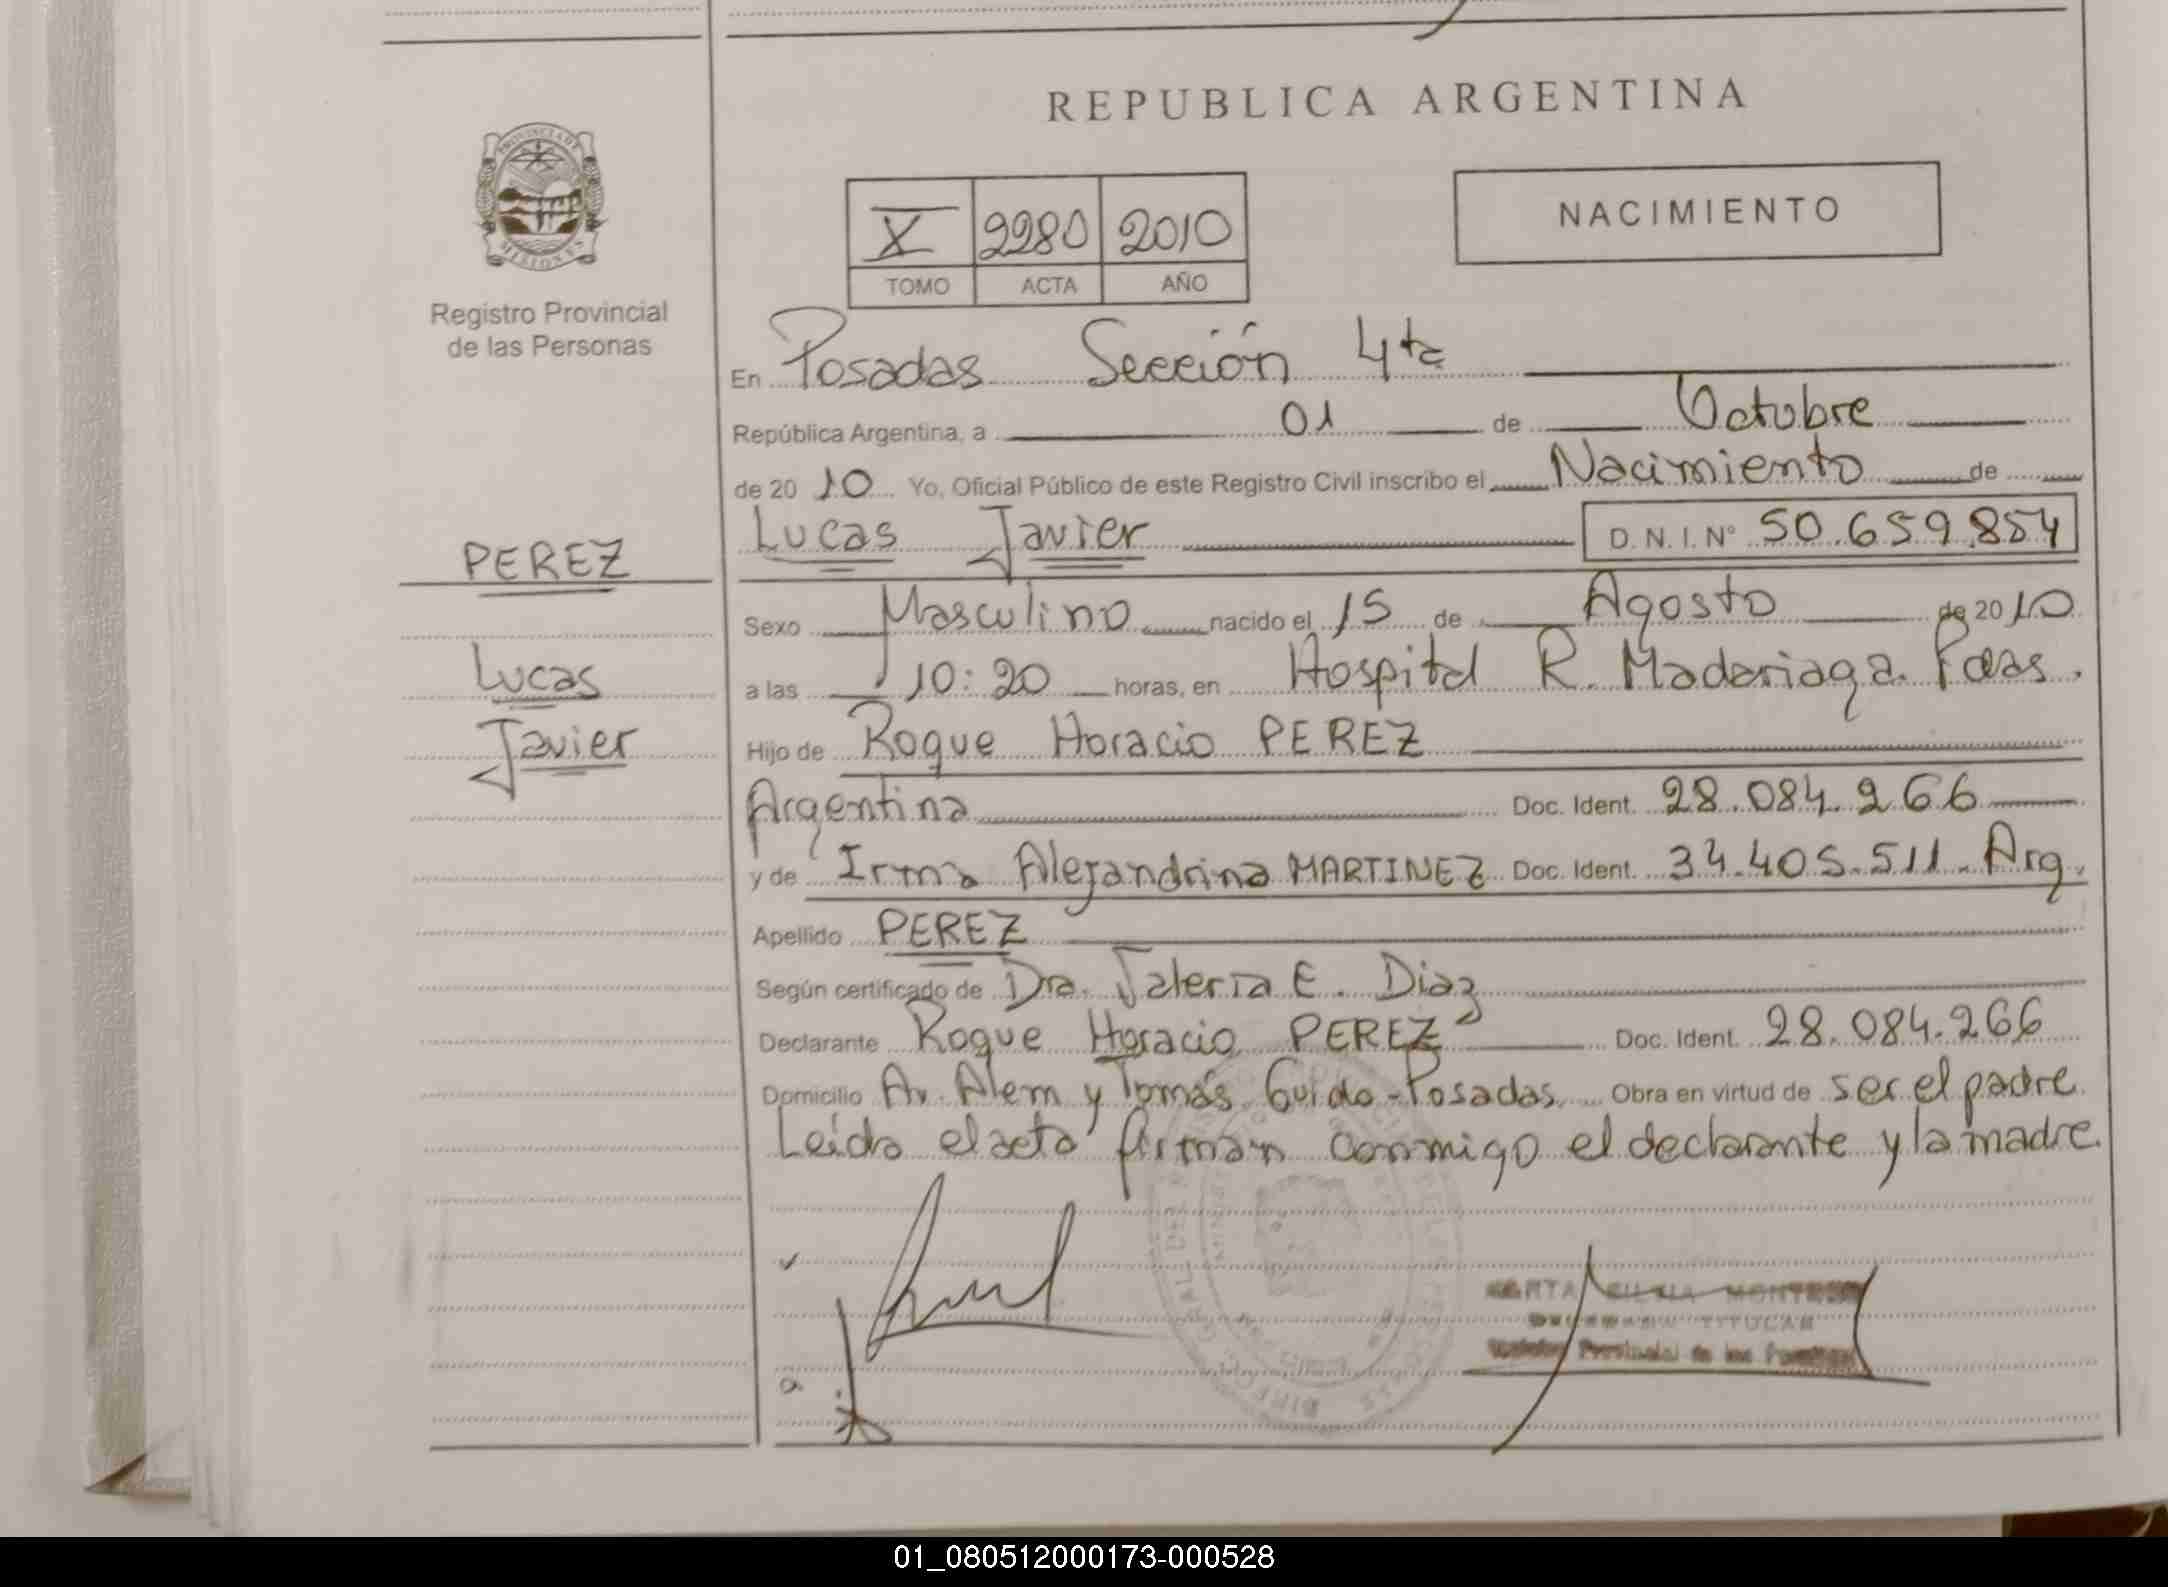 REPUBLICA ARGENTINA
PROVINCIA DE
MISIONES
Registro Provincial
de las Personas
X 2280 2010
TOMO ACTA AÑO
NACIMIENTO
En Posadas Sección 4ta
República Argentina, a 01 de Octubre
de 2010 Yo, Oficial Público de este Registro Civil inscribo el Nacimiento de
PEREZ
Lucas
Javier
Lucas Javier D.N.I. Nº 50.659.854
Sexo Masculino nacido el 15 de Agosto de 2010
a las 10:20 horas, en Hospital R. Madariaga. Pdas.
Hijo de Roque Horacio PEREZ
Argentina Doc. Ident. 28.084.266
y de Irma Alejandrina MARTINEZ Doc. Ident. 34.405.511. Arg.
Apellido PEREZ
Según certificado de Dra. Valeria E. Diaz
Declarante Roque Horacio PEREZ Doc. Ident. 28.084.266
Domicilio Av. Alem y Tomás Guido - Posadas. Obra en virtud de ser el padre.
Leída el acta firman conmigo el declarante y la madre.
TITULAR
Provincial de las Personas
01_080512000173-000528